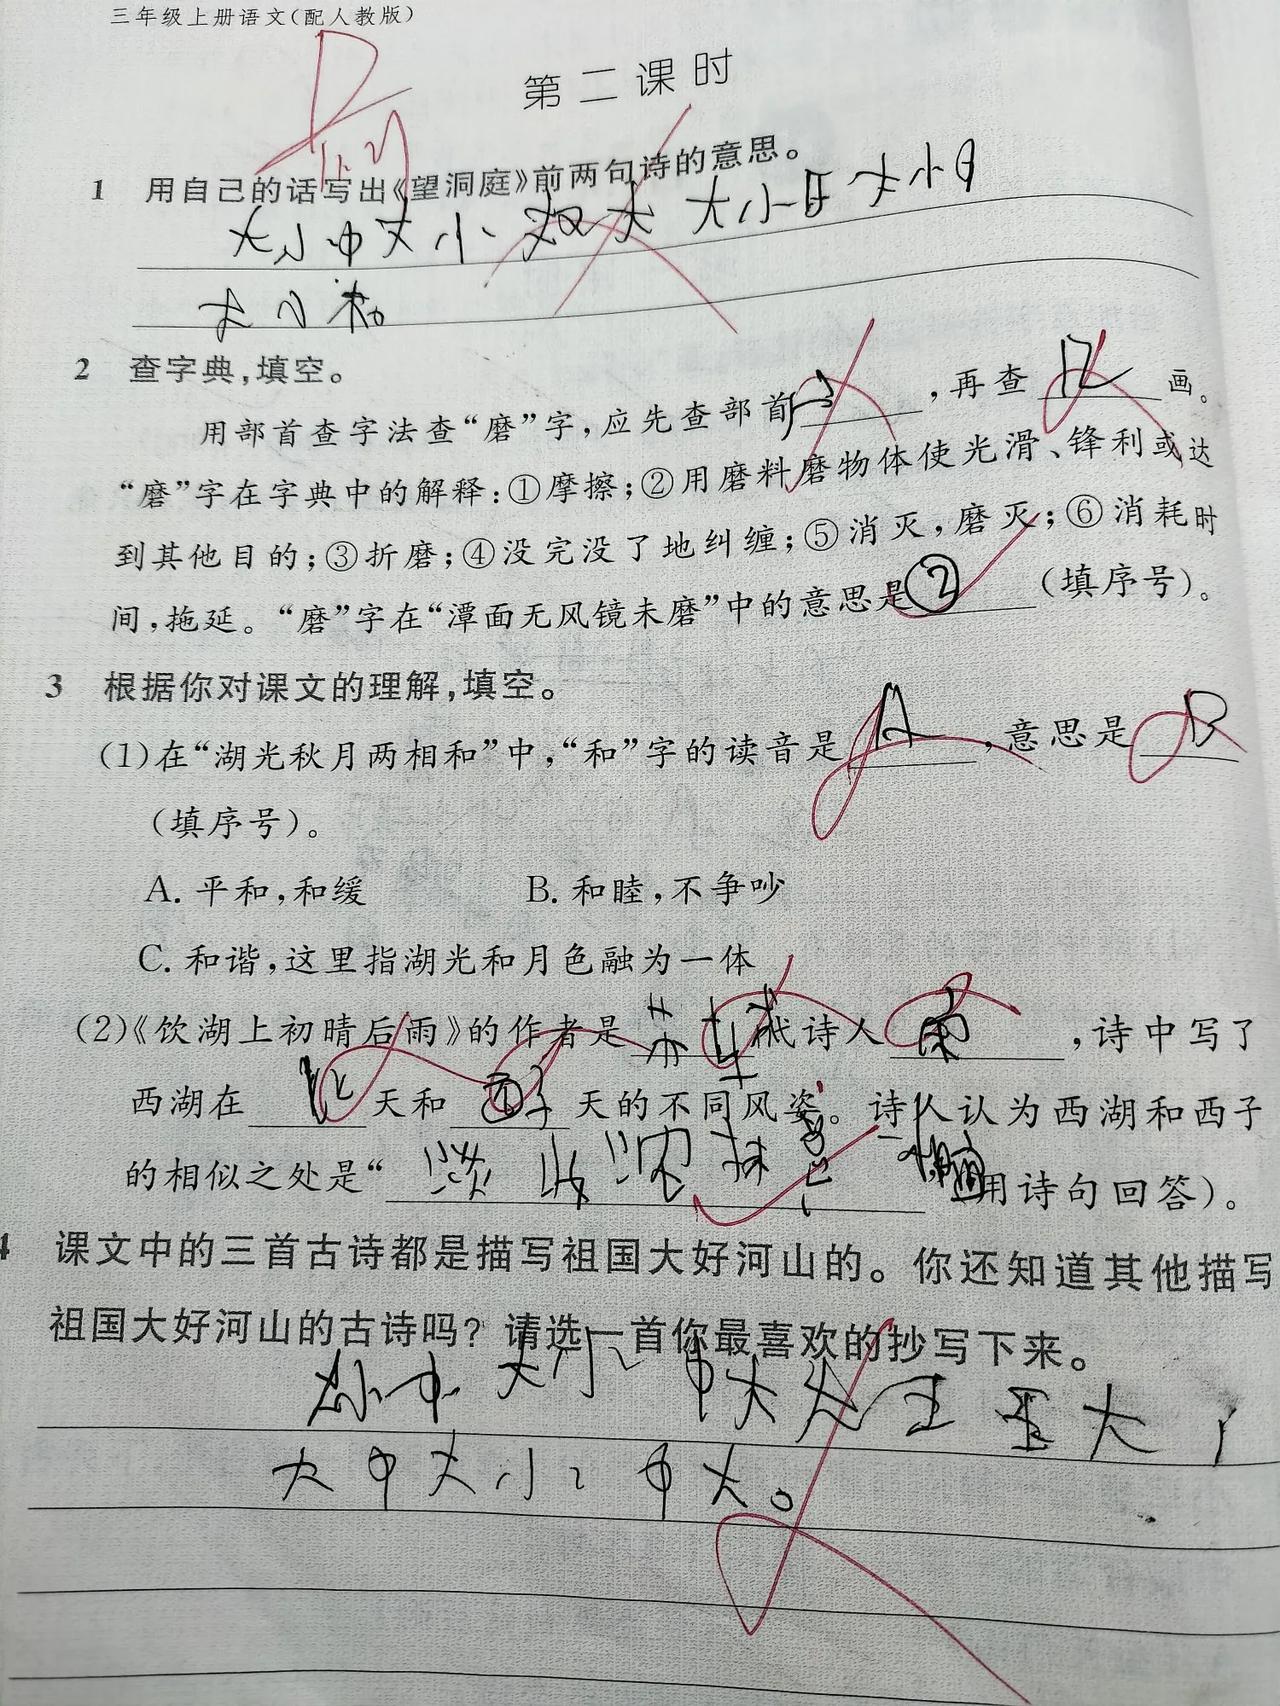 三年级上册语文(配人教版)
第二课时
1 用自己的话写出《望洞庭》前两句诗的意思。
大小中大小 大 大小日大小日
大
2 查字典,填空。
用部首查字法查“磨”字,应先查部首,再查 画。
“磨”字在字典中的解释:①摩擦;②用磨料磨物体使光滑、锋利或达
到其他目的;③折磨;④没完没了地纠缠;⑤消灭,磨灭;⑥消耗时
间,拖延。“磨”字在“潭面无风镜未磨”中的意思是②(填序号)。
3 根据你对课文的理解,填空。
(1)在“湖光秋月两相和”中,“和”字的读音是A,意思是B
(填序号)。
A. 平和,和缓 B. 和睦,不争吵
C. 和谐,这里指湖光和月色融为一体
(2)《饮湖上初晴后雨》的作者是 代诗人 ,诗中写了
西湖在 天和 天的不同风姿。诗人认为西湖和西子
的相似之处是“淡 浓抹 用诗句回答)。
4 课文中的三首古诗都是描写祖国大好河山的。你还知道其他描写
祖国大好河山的古诗吗?请选一首你最喜欢的抄写下来。
小中 大小 中大 王 大
大中大小 中大。